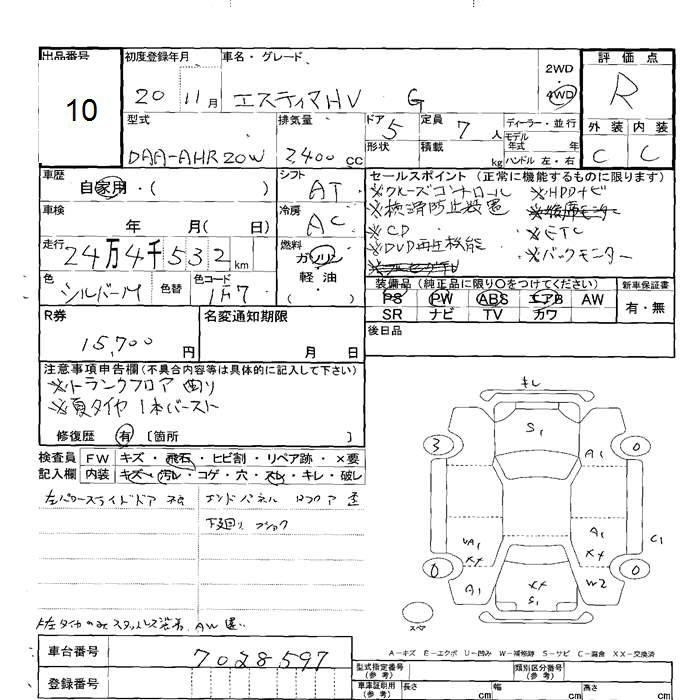 出品番号
10
初度登録年月
20 11月
車名・グレード
エスティマHV G
2WD
4WD
評価点
R
型式
DAA-AHR20W
排気量
2400cc
ドア 5
形状
定員 7人
積載 kg
ディーラー・並行
モデル年式 年
ハンドル 左・右
外装 内装
C C
車歴
自家用・( )
シフト
AT
セールスポイント (正常に機能するものに限ります)
※クルーズコントロール ※HDDナビ
※横滑防止装置
※CD ※ETC
※DVD再生機能 ※バックモニター
車検
年 月( 日)
冷房
AC
走行
24万4千532km
燃料
ガソリン
・
軽油
( )
色
シルバーM
色替
色コード
1F7
装備品 (純正品に限り○をつけてください)
PS PW ABS エアB AW
SR ナビ TV カワ
新車保証書
有・無
R券
15,700円
名変通知期限
月 日
後日品
注意事項申告欄(不具合内容等は具体的に記入して下さい)
※トランクフロア凹り
※夏タイヤ1本バースト
修復歴 有 〔箇所 〕
検査員
記入欄
FW キズ・飛石・ヒビ割・リペア跡・×要
内装 キズ・汚レ・コゲ・穴・スレ・キレ・破レ
左パワースライドドア エンドパネル ロフロア 歪
下廻り
F左タイヤのみスタッドレス装着、AW違い
キレ
S1
3 0
A1
VA1 A1 C1
XY XY
0 0
A1 XY W2
S1
スペア
A-キズ E-エクボ U-凹み W-補修跡 S-サビ C-腐食 XX-交換済
車台番号
7028597
登録番号
型式指定番号
(参考)
類別区分番号
(参考)
車庫証明用
(参考)
長さ cm 幅 cm 高さ cm